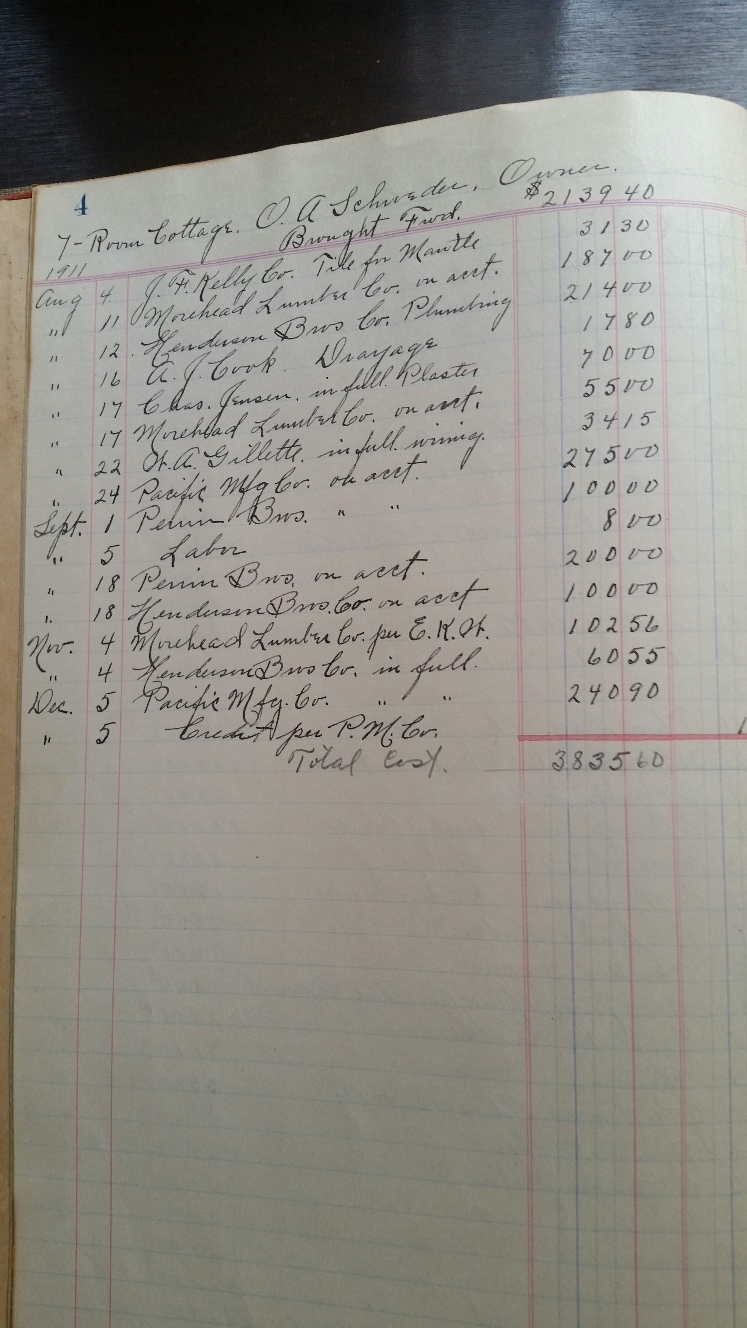 4
7-Room Cottage. O. A Schroeder, Owner.
1911 Brought Fwd. $2139 40
Aug 4. J. F. Kelly Co. Tile for Mantle 31 30
" 11 Morehead Lumber Co. on acct. 187 00
" 12. Henderson Bros Co. Plumbing 214 00
" 16 A. J. Cook. Drayage 17 80
" 17 Chas. Jensen. in full. Plaster 70 00
" 17 Morehead Lumber Co. on acct. 55 00
" 22 A. Gillette. in full. wiring. 34 15
" 24 Pacific Mfg Co. on acct. 275 00
Sept. 1 Perrin Bros. " " 100 00
" 5 Labor 8 00
" 18 Perrin Bros. on acct. 200 00
" 18 Henderson Bros. Co. on acct 100 00
Nov. 4 Morehead Lumber Co. per E. K. 102 56
" 4 Henderson Bros Co. in full. 60 55
Dec. 5 Pacific Mfg. Co. " " 240 90
" 5 Credit per P. M. Co.
Total Cost. 3835 60